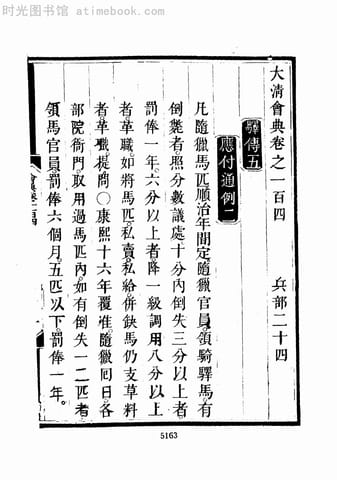 时光图书馆 - atimebook.com
大清會典卷之一百四 兵部二十四
驛傳五
應付通例一
凡隨獵馬匹順治年間定隨獵官員領騎驛馬有
倒斃者照分數議處十分內倒失三分以上者
罰俸一年。六分以上者降一級調用八分以上
者革職如將馬匹私賣私給併缺馬仍支草料
者革職提問〇康熙十六年覆准隨獵囘日各
部院衙門取用過馬匹內如有倒失一二匹者
領馬官員罰俸六個月。五匹以下罰俸一年。
會典卷一百四
5163